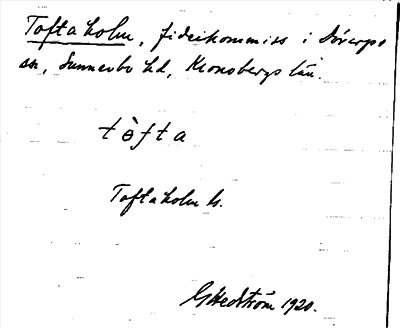 Toftaholm, fideikommiss i Dörarps
sn, Sunnerbo hd, Kronobergs län.
tòfta
Toftaholm h.
G Hedström 1920.